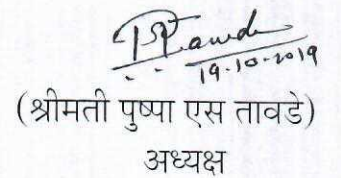 19.10.2019
(श्रीमती पुष्पा एस तावडे)
अध्यक्ष